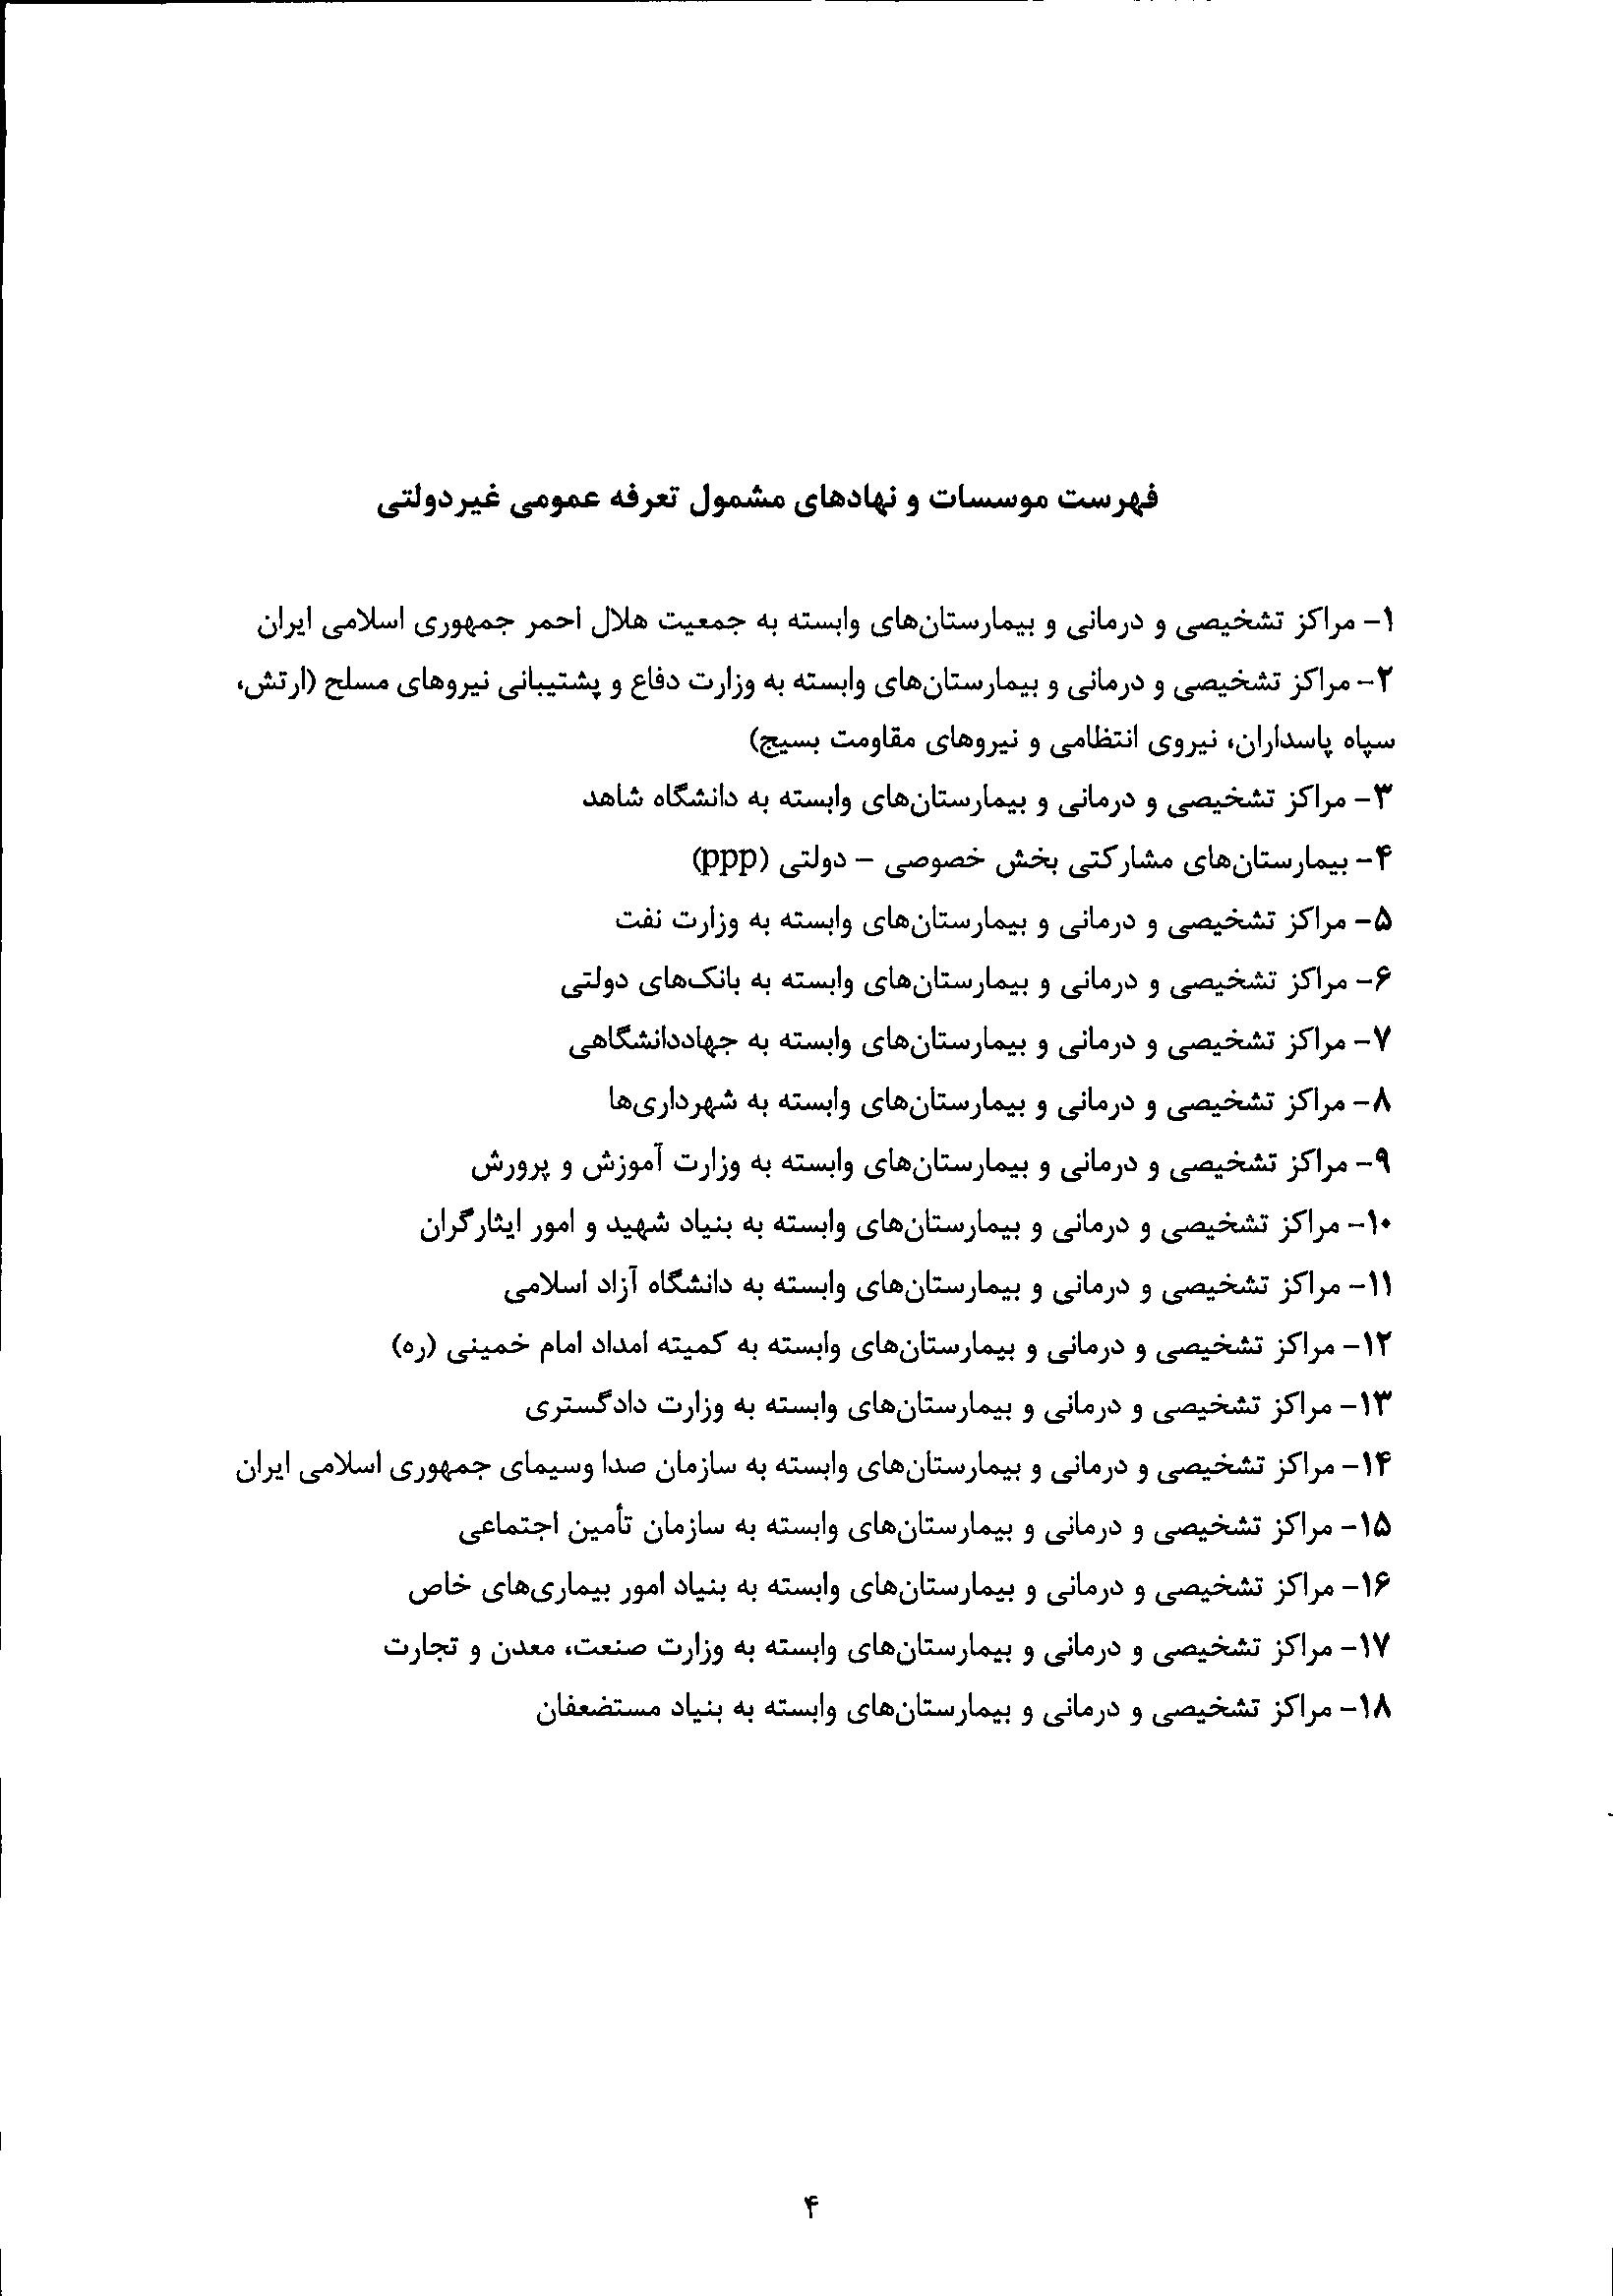 فهرست موسسات و نهادهای مشمول تعرفه عمومی غیردولتی
۱- مراکز تشخیصی و درمانی و بیمارستان‌های وابسته به جمعیت هلال احمر جمهوری اسلامی ایران
۲- مراکز تشخیصی و درمانی و بیمارستان‌های وابسته به وزارت دفاع و پشتیبانی نیروهای مسلح (ارتش،
سپاه پاسداران، نیروی انتظامی و نیروهای مقاومت بسیج)
۳- مراکز تشخیصی و درمانی و بیمارستان‌های وابسته به دانشگاه شاهد
۴- بیمارستان‌های مشارکتی بخش خصوصی – دولتی (ppp)
۵- مراکز تشخیصی و درمانی و بیمارستان‌های وابسته به وزارت نفت
۶- مراکز تشخیصی و درمانی و بیمارستان‌های وابسته به بانک‌های دولتی
۷- مراکز تشخیصی و درمانی و بیمارستان‌های وابسته به جهاددانشگاهی
۸- مراکز تشخیصی و درمانی و بیمارستان‌های وابسته به شهرداری‌ها
۹- مراکز تشخیصی و درمانی و بیمارستان‌های وابسته به وزارت آموزش و پرورش
۱۰- مراکز تشخیصی و درمانی و بیمارستان‌های وابسته به بنیاد شهید و امور ایثارگران
۱۱- مراکز تشخیصی و درمانی و بیمارستان‌های وابسته به دانشگاه آزاد اسلامی
۱۲- مراکز تشخیصی و درمانی و بیمارستان‌های وابسته به کمیته امداد امام خمینی (ره)
۱۳- مراکز تشخیصی و درمانی و بیمارستان‌های وابسته به وزارت دادگستری
۱۴- مراکز تشخیصی و درمانی و بیمارستان‌های وابسته به سازمان صدا وسیمای جمهوری اسلامی ایران
۱۵- مراکز تشخیصی و درمانی و بیمارستان‌های وابسته به سازمان تأمین اجتماعی
۱۶- مراکز تشخیصی و درمانی و بیمارستان‌های وابسته به بنیاد امور بیماری‌های خاص
۱۷- مراکز تشخیصی و درمانی و بیمارستان‌های وابسته به وزارت صنعت، معدن و تجارت
۱۸- مراکز تشخیصی و درمانی و بیمارستان‌های وابسته به بنیاد مستضعفان
۴